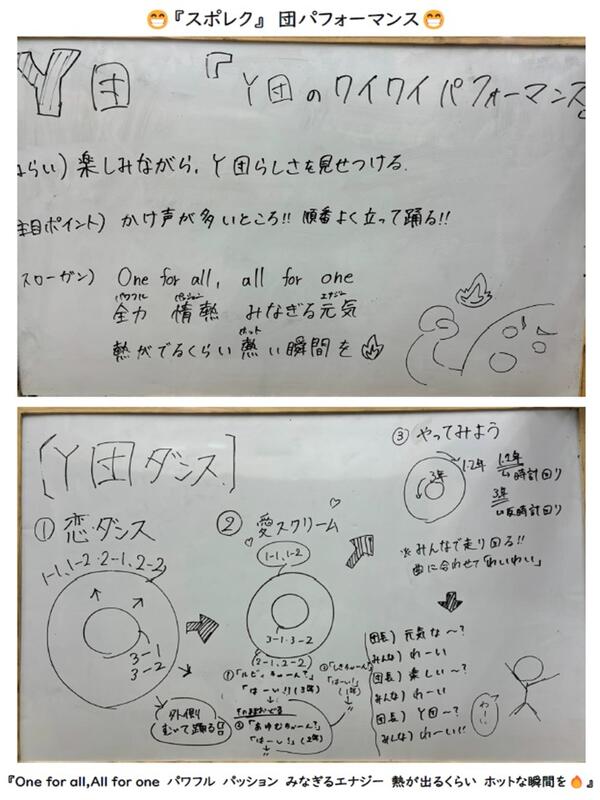 😁『スポレク』 団パフォーマンス😁
Y団 『Y団のワイワイパフォーマンス』
ねらい) 楽しみながら、Y団らしさを見せつける。
注目ポイント) かけ声が多いところ!! 順番よく立って踊る!!
スローガン) One for all, all for one
全力 情熱 みなぎる元気
パワフル パッション エナジー
熱がでるくらい 熱い瞬間を
ホット
[Y団ダンス]
① 恋ダンス
1-1、1-2、2-1、2-2
3-1
3-2
外側
むいて踊る
② 愛スクリーム
1-1、1-2
3-1・3-2
2-1、2-2
①「ルビィちゃーん?」
「はーい!!」(3年)
②「あゆむちゃーん?」
「はーい!」(2年)
「はーい!」
(1年)
③ やってみよう
3年
1・2年
1.2年
↳時計回り
3年
↳反時計回り
※みんなで走り回る!!
曲に合わせて「わいわい」
団長) 元気な~?
みんな) わーい
団長) 楽しい~?
みんな) わーい
団長) Y団~?
みんな) わーい!!
わーい
『One for all,All for one パワフル パッション みなぎるエナジー 熱が出るくらい ホットな瞬間を🔥』